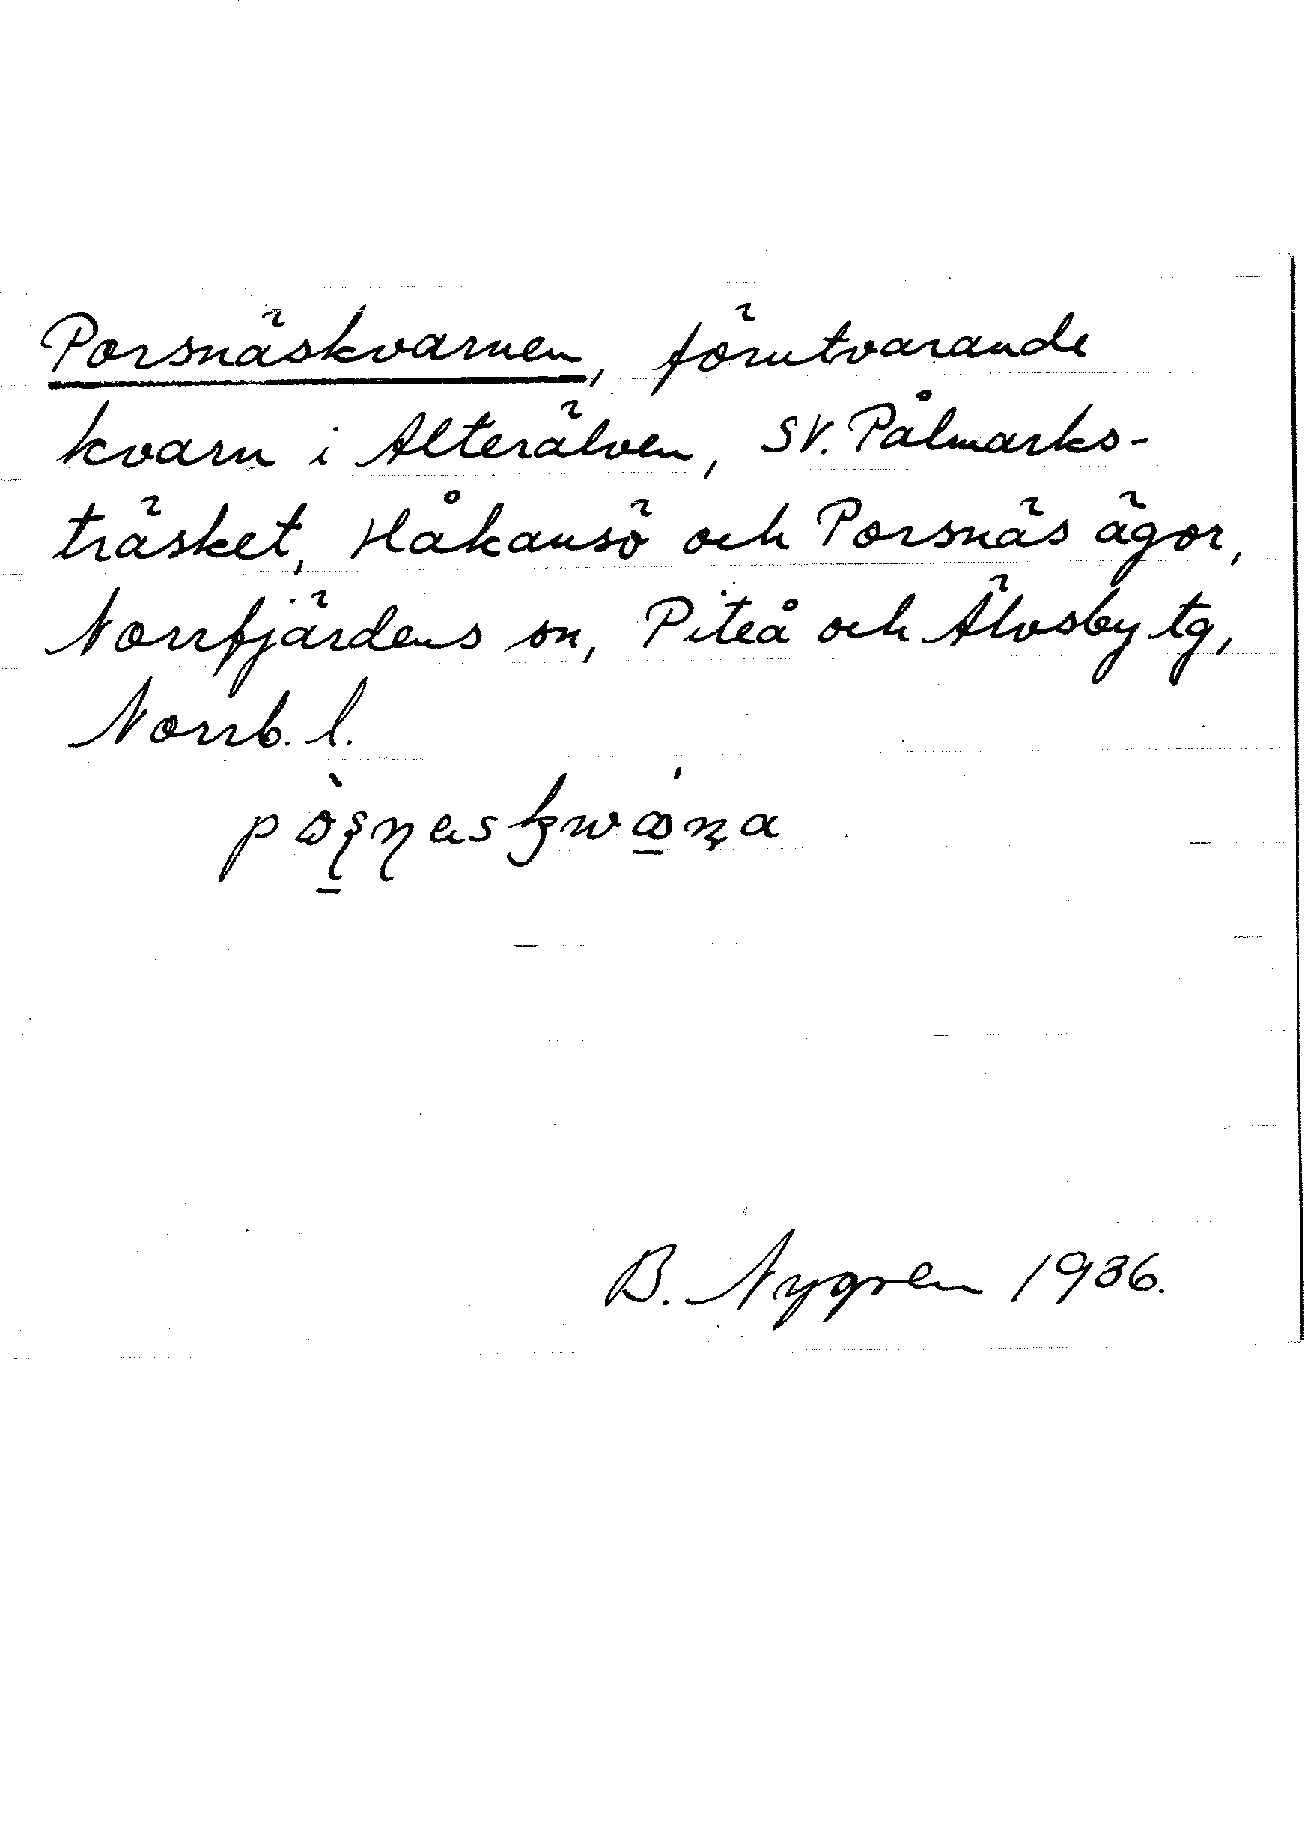 Porsnäskvarnen, förutvarande
kvarn i Alterälven, SV. Pålmarks-
träsket, Håkansö och Porsnäs ägor,
Norrfjärdens sn, Piteå och Älvsby tg,
Norrb. l.
B. Nygren 1936.